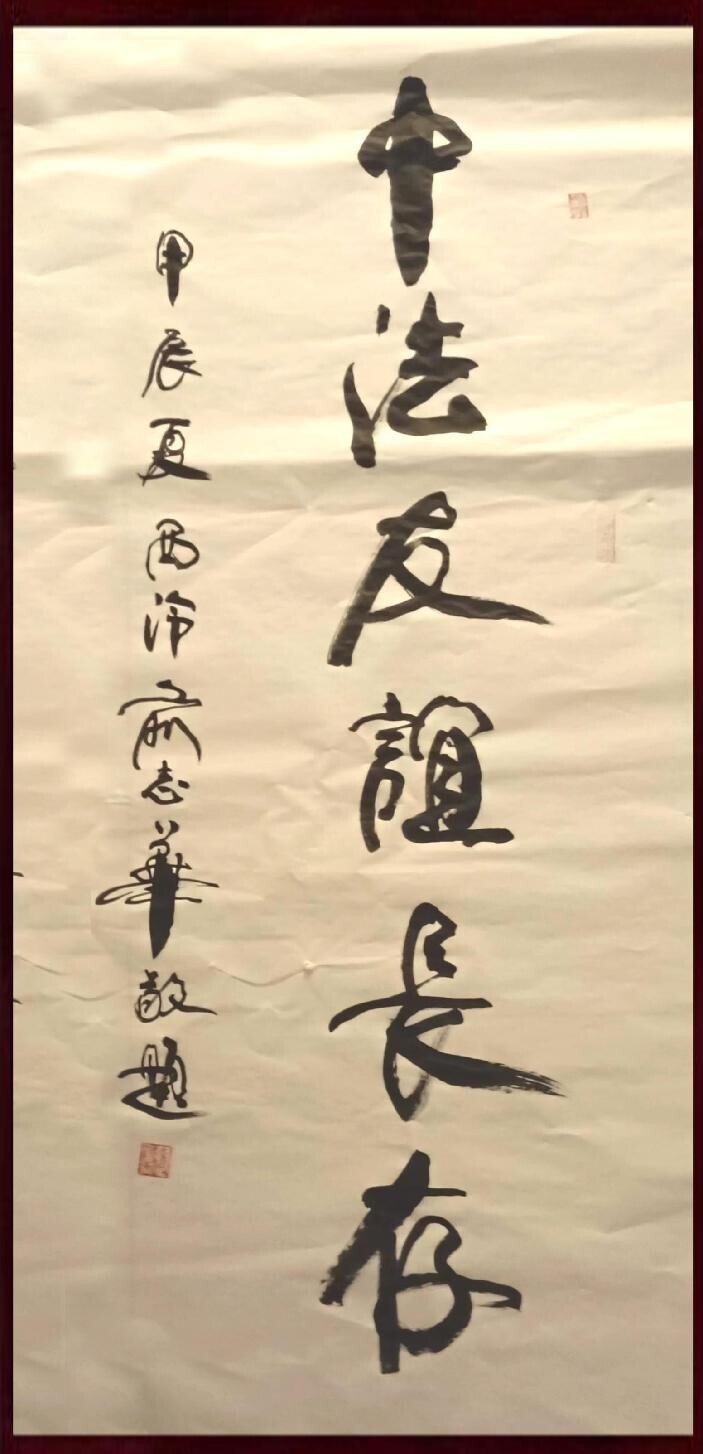 中法友誼長存
甲辰夏西泠俞志華敬題